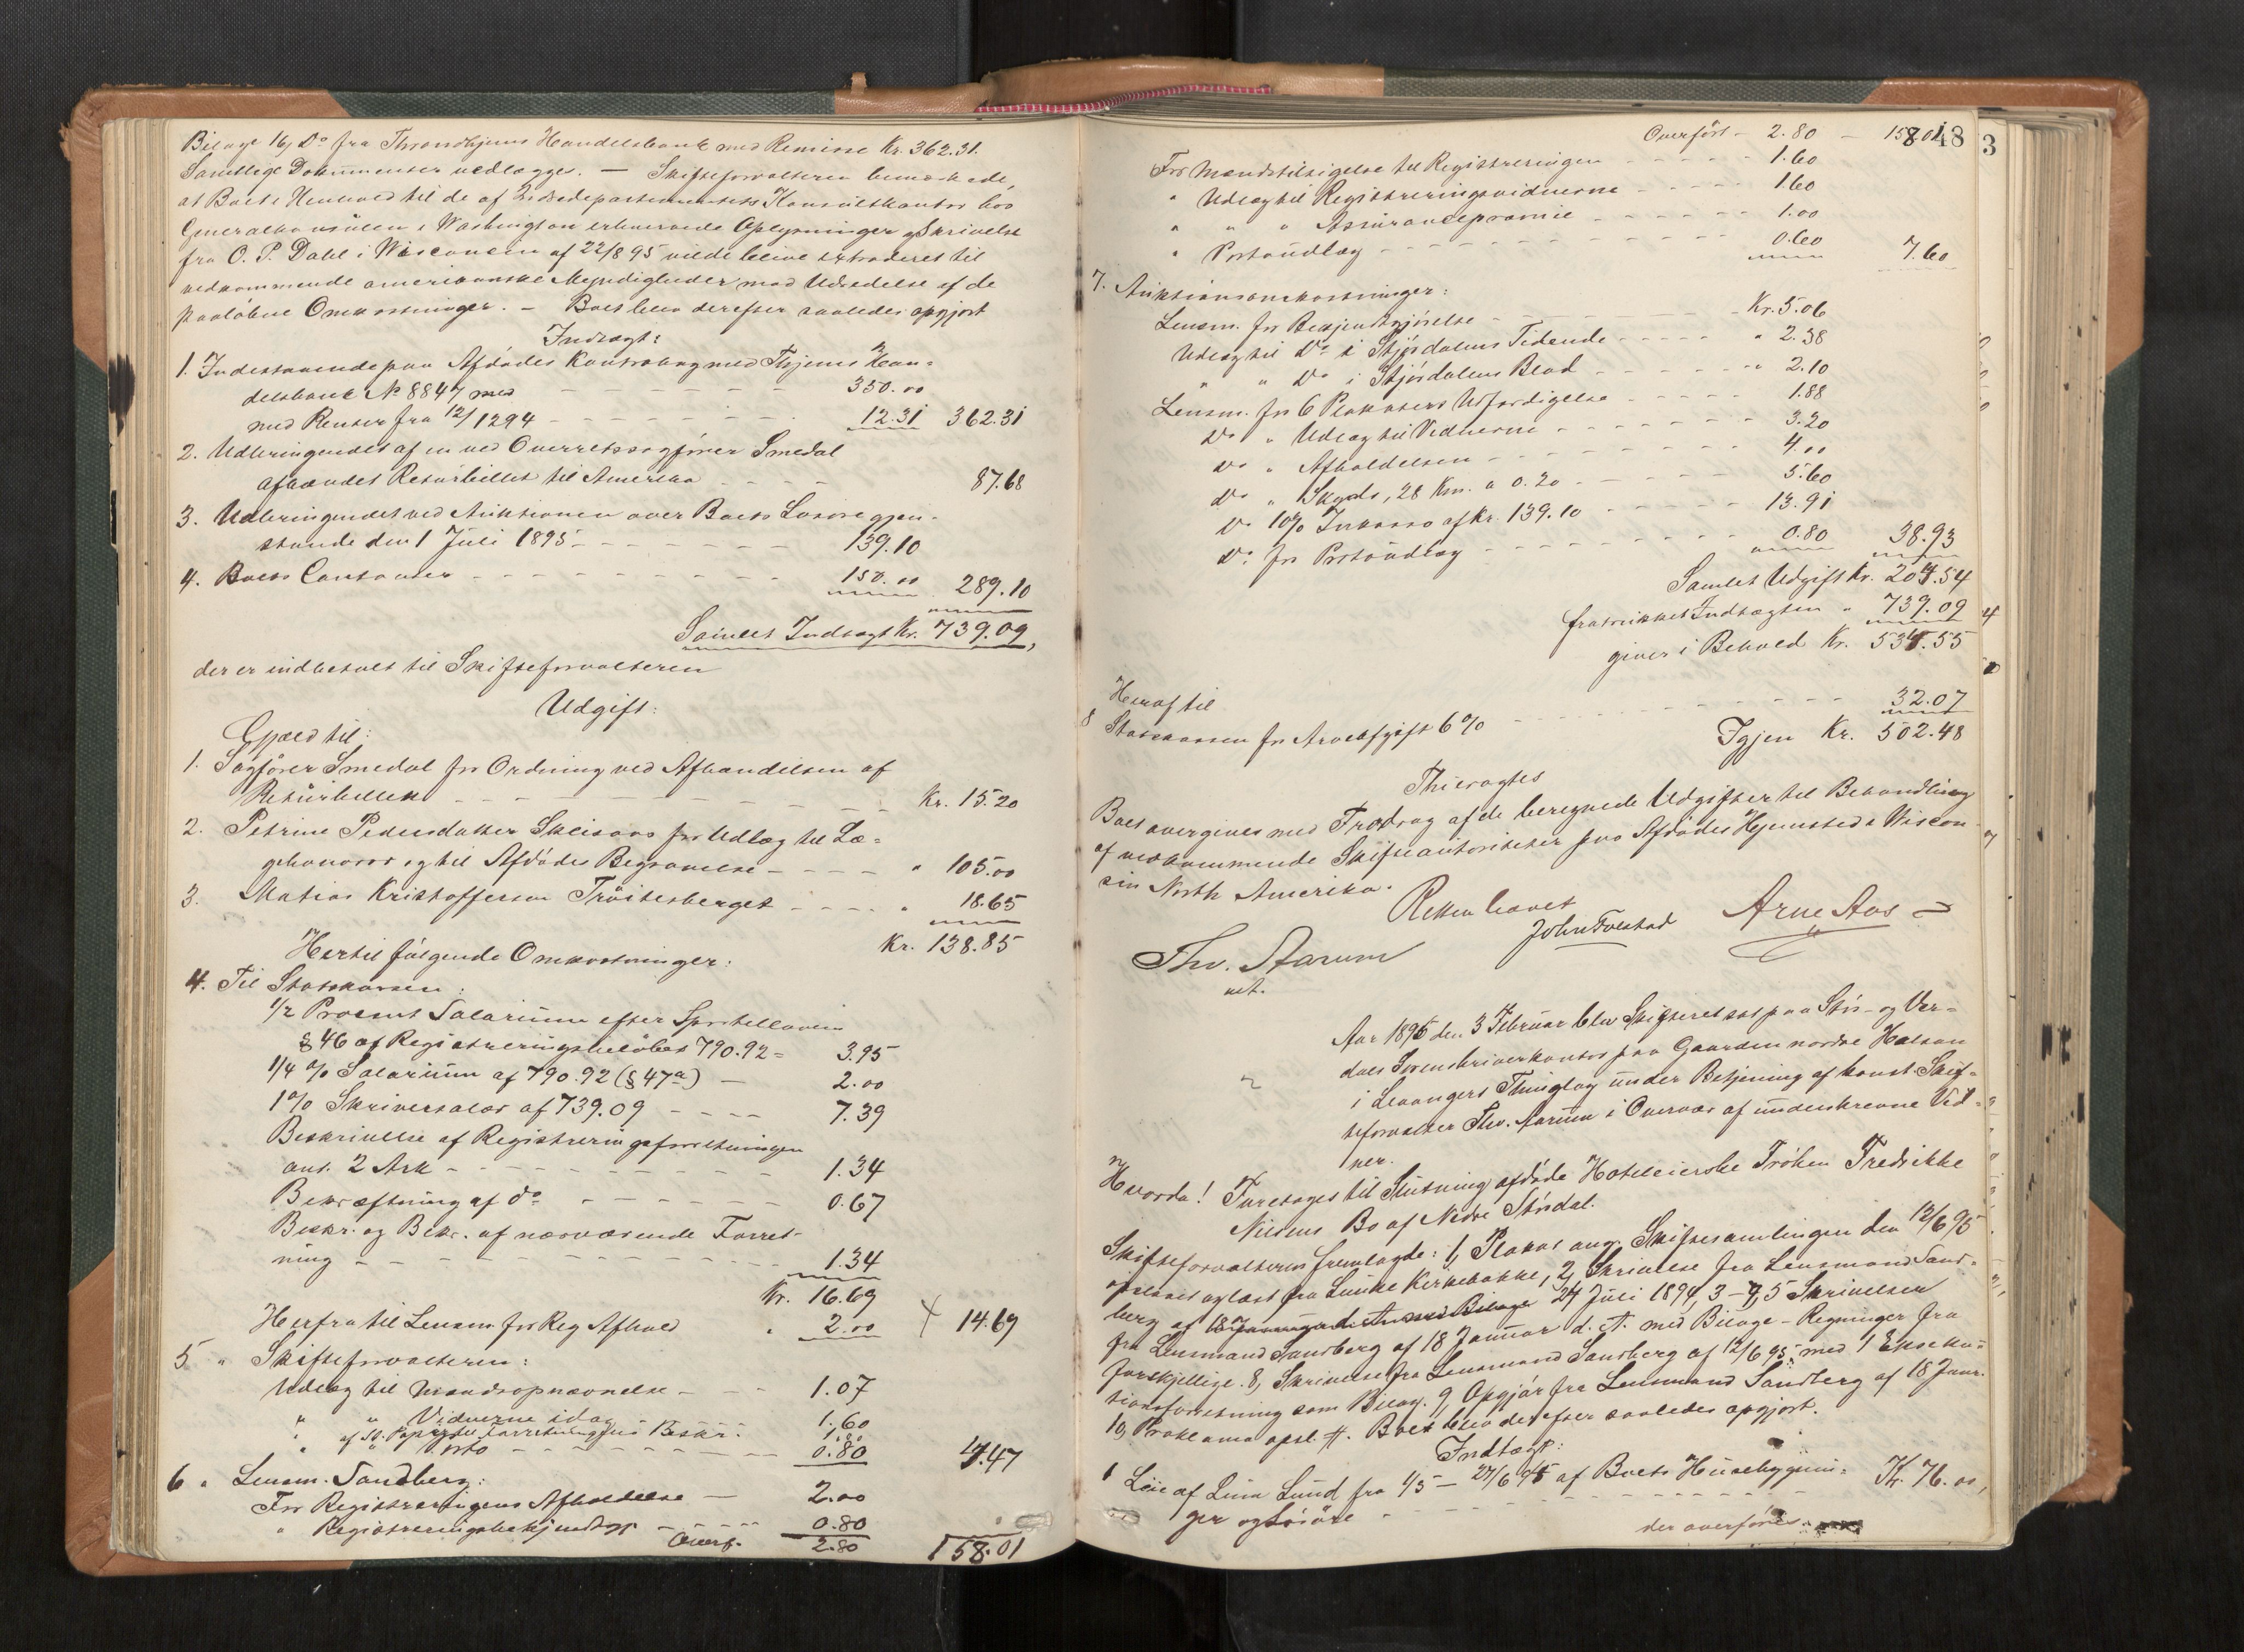 Bilage 16, Do fra Throndhjems Handelsbank med Remisse Kr. 362.31.
Samtlige Dokumenter vedlægges. — Skifteforvalteren bemærkede,
at Boet i Henhold til de af Indredepartementets Konsulatkontor hos
Generalkonsulen i Washington erhvervede Oplysninger og Skrivelse
fra O. P. Dahl i Wisconsin af 22/8 95 vilde blive extraderet til
vedkommende amerikanske Myndigheder mod Udredelse af de
paaløbne Omkostninger. — Boet blev derefter saaledes opgjort
Indtægt:
1. Indestaaende paa Afdødes Kontrabog med Thjems Han-
delsbank No 8847 med — 350.00
med Renter fra 12/12 94 — 12.31 362.31
2. Udbringendet af en ved Overretssagfører Smedal
afhændet Returbillet til Amerika 87.68
3. Udbringendet ved Auktionen over Boets Løsøregjen-
stande den 1 Juli 1895 — 139.10
4. Boets Contanter — 150.00 289.10
Samlet Indtægt Kr. 739.09,
der er indbetalt til Skifteforvalteren
Udgift:
Gjæld til:
1. Sagfører Smedal for Ordning ved Afhændelsen af
Returbilletten — Kr. 15.20
2. Petrine Pedersdatter for Udlæg til Læ-
gehonorar og til Afdødes Begravelse — " 105.00
3. Matias Kristoffersen Trøitesberget — " 18.65
Kr. 138.85
Hertil følgende Omkostninger:
4. Til Statskassen:
1/2 Procent Salarium efter Sportelloven
§ 46 af Registreringsbeløbet 790.92 = 3.95
1/4 % Salarium af 790.92 (§ 47a) — 2.00
1% Skriversalær af 739.09 — 7.39
Beskrivelse af Registreringsforretningen
ant. 2 Ark — 1.34
Bekræftning af do — 0.67
Beskr. og Bekr. af nærværende Forret-
ning — 1.34
Kr. 16.69
Herfra til Lensm. for Reg Afhold " 2.00 14.69
5 " Skifteforvalteren:
Udlæg til Mandsopnævnelse — 1.07
" " Vidnerne idag 1.60
" af St. Papir til Forretning Beskr. 1.00
" " Porto — 0.80 4.47
6 " Lensm. Sandberg:
For Registreringens Afholdelse — 2.00
" Registreringsbekjendtgj. — 0.80
Overf. 2.80 158.01
Overført — 2.80 — 158.01
48
3
For Mandstilsigelse til Registreringen — 1.60
" Udlæg til Registreringsvidnerne — 1.60
" " " Assurancepræmie — 1.00
" Portoudlæg — 0.60 7.60
7. Auktionsomkostninger:
Lensm. for Bekjendtgjørelse — Kr. 5.06
Udlæg til Do i Stjørdalens Tidende — " 2.38
" " Do i Stjørdalens Blad — " 2.10
Lensm. for 6 Plakaters Udfærdigelse — 1.88
Do " Udlæg til Vidnerne — 3.20
Do " Afholdelsen — 4.00
Do " Skyds, 28 Km. a 0.20 — 5.60
Do 10% Inkasso af Kr. 139.10 — 13.91
Do for Portoudlæg — 0.80 38.93
Samlet Udgift Kr. 204.54
fratrukket Indtægten " 739.09
giver i Behold Kr. 534.55
Heraf til
8 Statskassen for Arveafgift 6% — 32.07
Igjen Kr. 502.48
Thi eragtes
Boet overgives med Fradrag af de beregnede Udgifter til Behandling
af vedkommende Skifteautoriteter paa Afdødes Hjemsted i Wiscon-
sin North Amerika.
Retten hævet
Thv. Aarum
John Folstad
Arne Aas
cst.
Aar 1896 den 3 Februar blev Skifteret sat paa Stør- og Vær-
dals Sorenskriverkontor paa Gaarden nordre Halsan
i Levangers Thinglag under Betjening af konst. Skif-
teforvalter Thv. Aarum i Overvær af underskrevne Vid-
ner.
Hvorda! Foretoges til Slutning afdøde Hoteleierske Frøken Fredrikke
Nilsens Bo af Nedre Stjørdal.
Skifteforvalteren fremlagde: 1, Plakat ang. Skiftesamlingen den 12/6 95
oplæst fra Lunke Kirkebakke, 2, Skrivelse fra Lensmand Sand-
berg af 24 Juli 1894, 3-4, 5 Skrivelser
fra Lensmand Sandberg af 18 Januar d. A. med Bilage - Regninger fra
forskjellige. 8, Skrivelse fra Lensmand Sandberg af 12/6 95 med 1 Ekseku-
tionsforretning som Bilag. 9, Opgjør fra Lensmand Sandberg af 18 Janr.
10, Proklama opl. A. Boet blev derefter saaledes opgjort.
Indtægt:
1 Leie af Lina Lund fra 1/5 — 24/6 95 af Boets Husebygnin-
ger og Løsøre — Kr. 76.00,
der overføres.